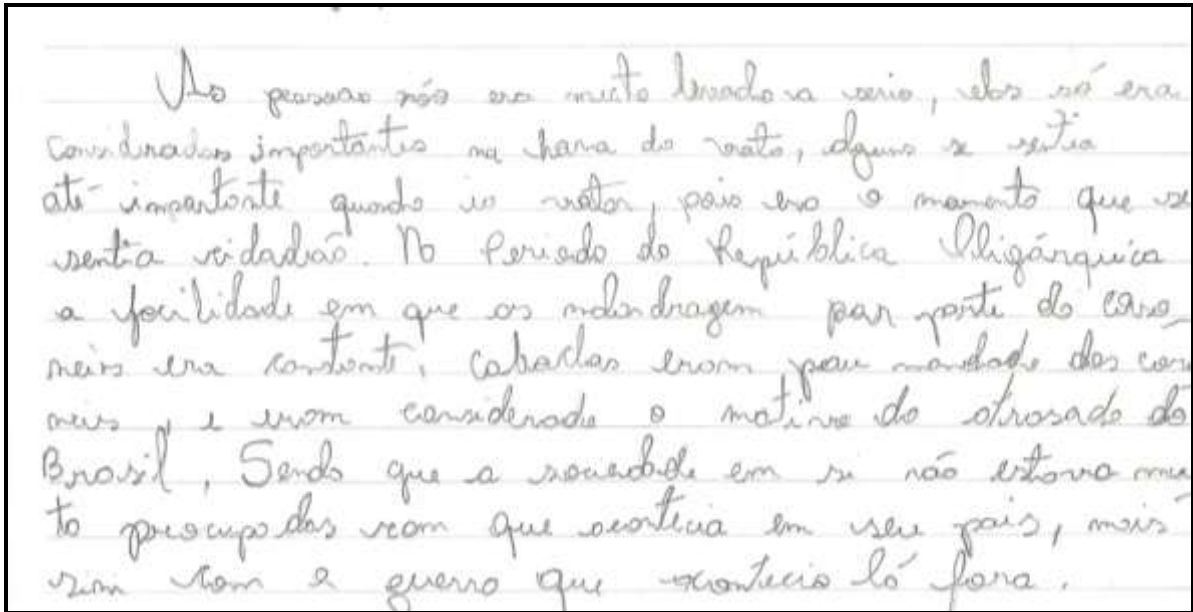 As pessoas não era muito levados a serio, elas só era
consideradas importantes na hora do voto, alguns se sentia
até importante quando ia votar, pois era o momento que se
sentia cidadão. No Periodo da República Oligárquica
a facilidade em que as malandragem por parte do coro
neis era constante, caboclos eram pau mandado dos coro
neis, e eram considerado o motivo do atrasado do
Brasil, Sendo que a sociedade em si não estava mui
to preocupados com que acontecia em seu pais, mais
sim com a guerra que acontecia lá fora.